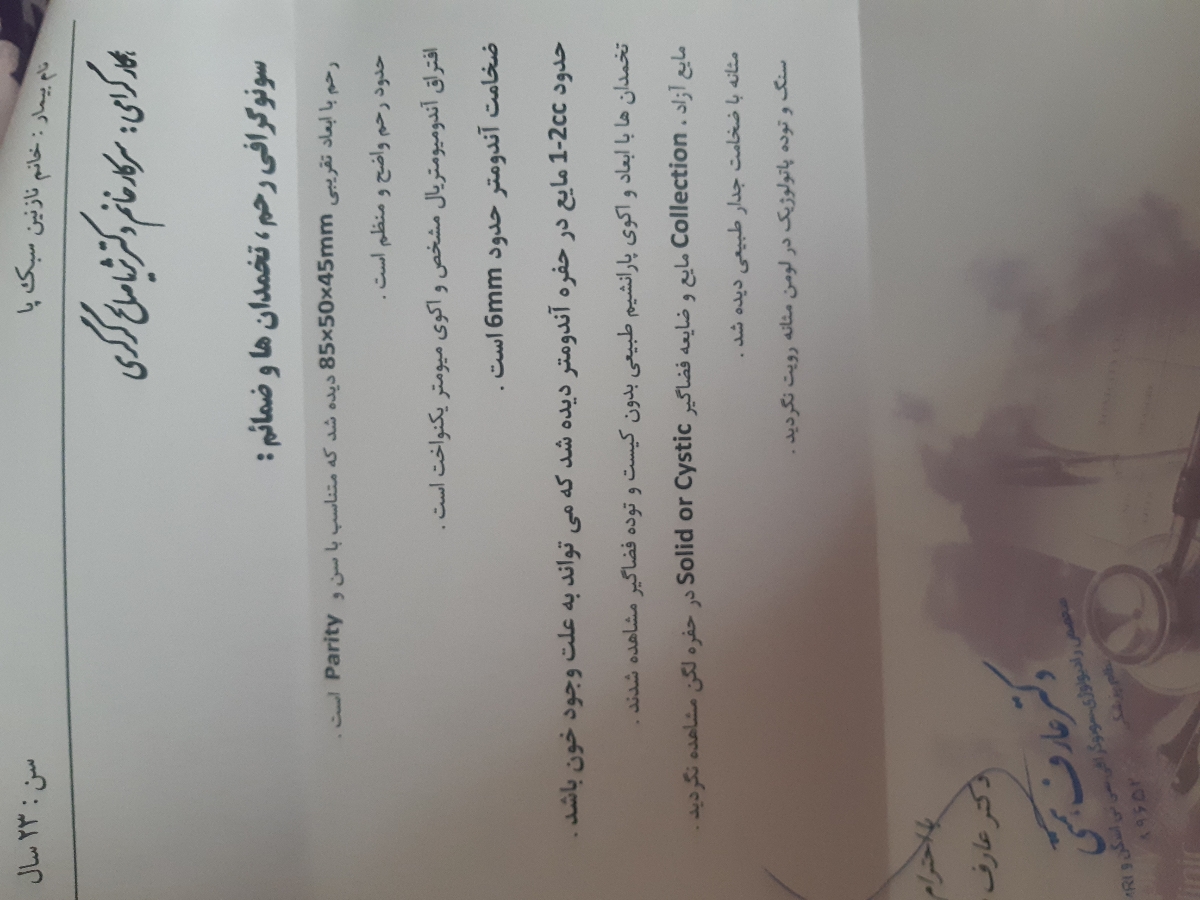 نام بیمار : خانم نازنین سبک پا
سن : ۲۳ سال
همکار گرامی : سرکار خانم دکتر شاملاع گرگری
سونوگرافی رحم ، تخمدان ها و ضمائم :
رحم با ابعاد تقریبی 85x50x45mm دیده شد که متناسب با سن و Parity است .
حدود رحم واضح و منظم است .
افتراق آندومیومتریال مشخص و اکوی میومتر یکنواخت است .
ضخامت آندومتر حدود 6mm است .
حدود 1-2cc مایع در حفره آندومتر دیده شد که می تواند به علت وجود خون باشد .
تخمدان ها با ابعاد و اکوی پارانشیم طبیعی بدون کیست و توده فضاگیر مشاهده شدند .
مایع آزاد ، Collection مایع و ضایعه فضاگیر Solid or Cystic در حفره لگن مشاهده نگردید .
مثانه با ضخامت جدار طبیعی دیده شد .
سنگ و توده پاتولوژیک در لومن مثانه رویت نگردید .
با احترام
دکتر عارف
دکتر عارف
متخصص رادیولوژی سونوگرافی سی تی اسکن و MRI
۸۹۶۵۲